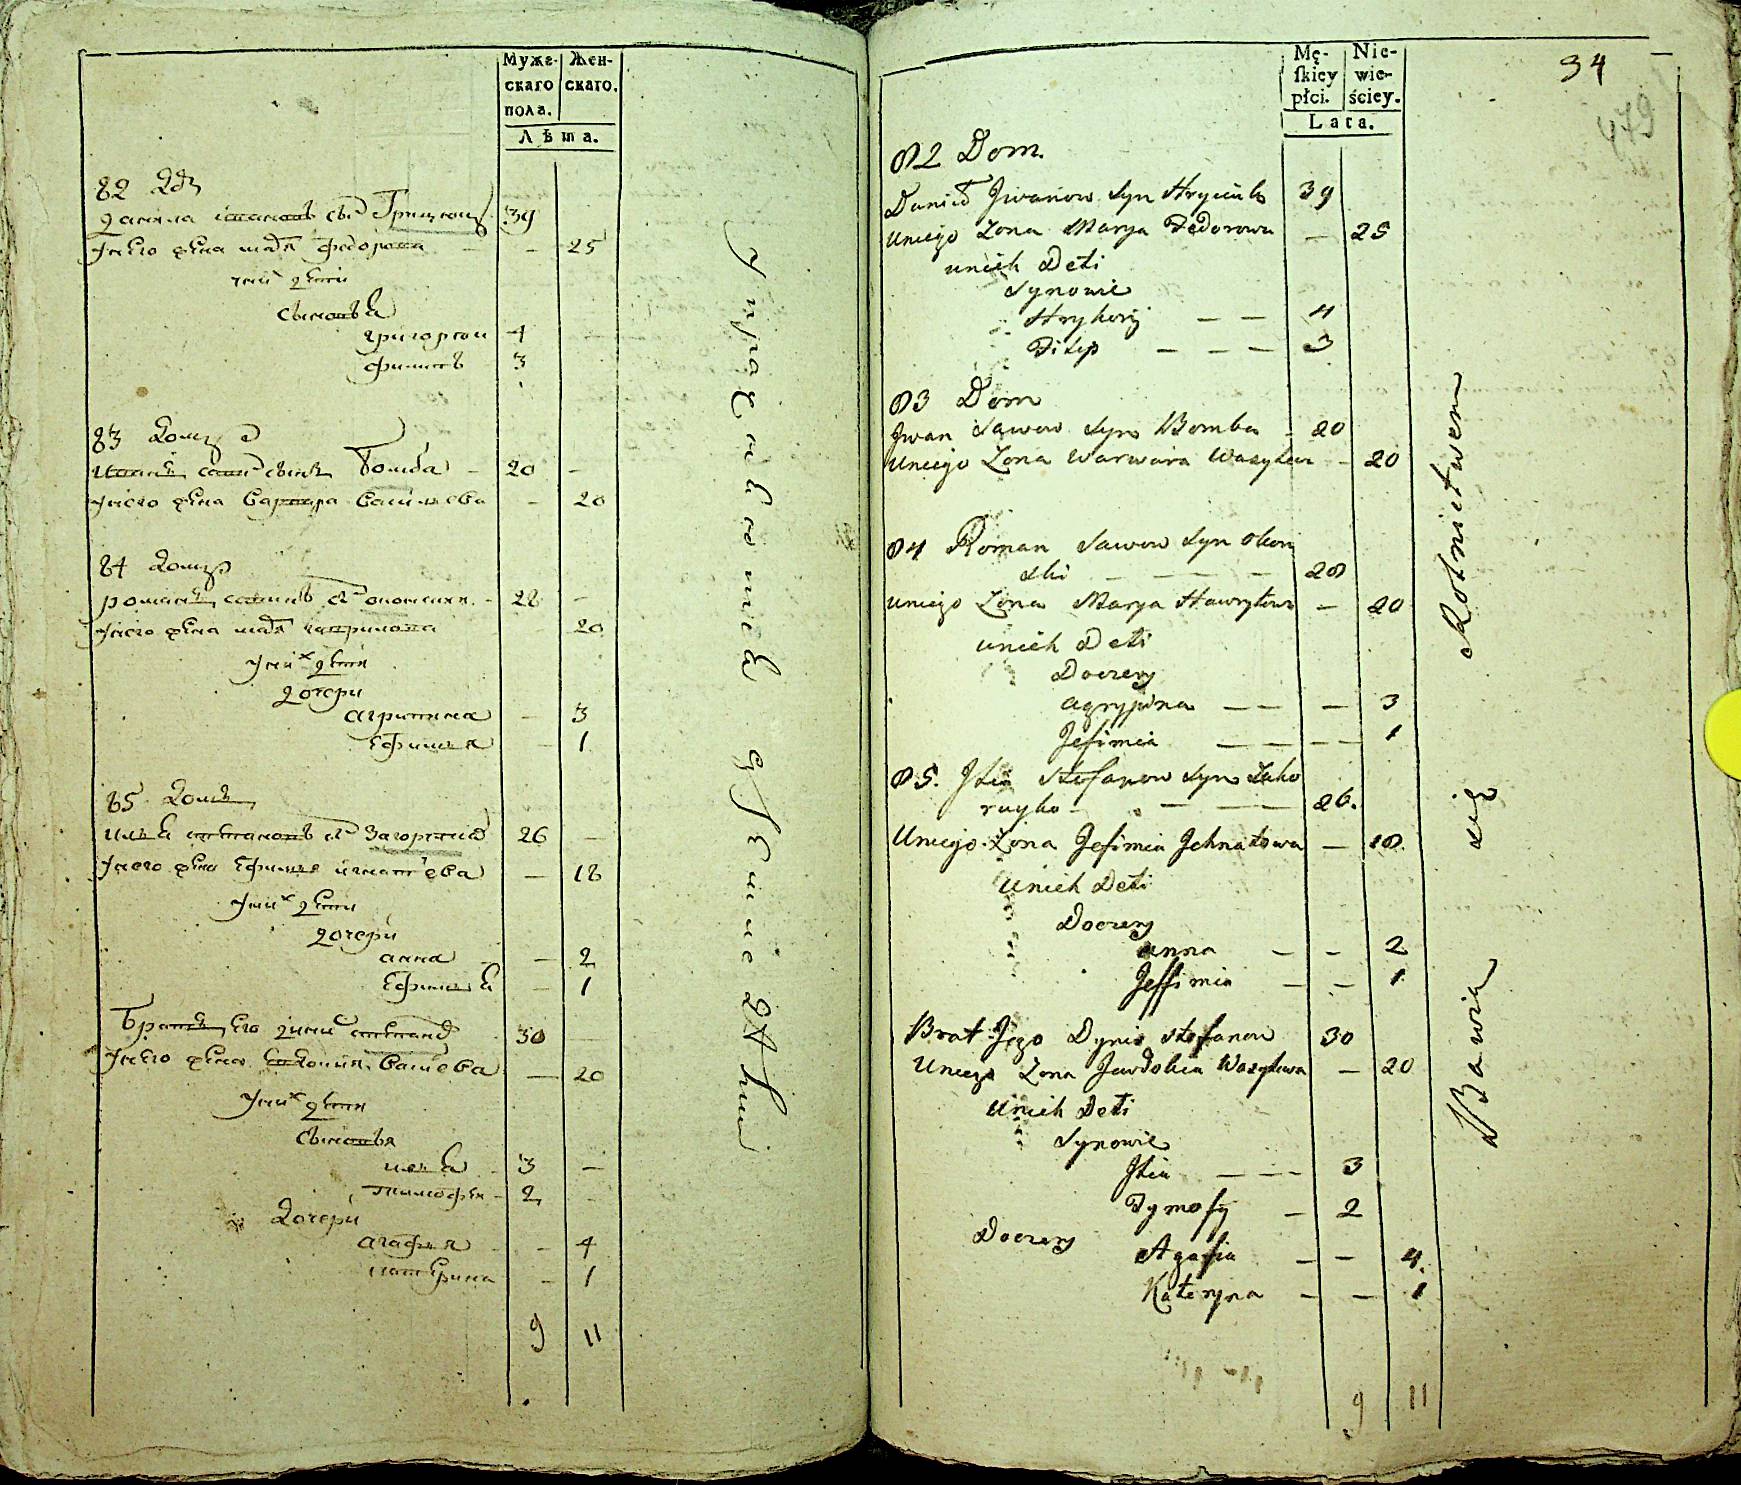 Муже-
скаго
пола.
Жен-
скаго.
Лѣта.
82 Д
Данила Ивановъ сынъ Грицюк 39
Унего жена Маря Федорова - - 25
уних дети
сыновья
григореи 4
филипъ 3
83 Домъ
Иванъ Савин сынъ Бомба - 20 -
Унего жена Варвара Василева - 20
84 Домъ
романъ савинъ сн - 28 -
Унего жена Маря гаврилова 20
Уних дети
дочери
агрипина - 3
Ефимия - 1
85 Домъ
илья степановъ сн Загоруико 26 -
Унего жена Ефимия игнатева - 18
Уних дети
дочери
анна - 2
Ефимия - 1
Братъ Его динис степанов 30 -
Унего жена Евдокия Васильева - 20
Уних дети
сыновья
илья 3 -
тимофеи 2 -
Дочери
агафия - 4
катерина - 1
9 11
Упражняютца
Mę-
ſkiey
płci.
Nie-
wie-
ściey.
Lata.
34
479
82 Dom.
Danił Jwanow Syn Hryciuk 39
Uniego Zona Marya Fedorowa - 25
unich Deti
Synowie
Hryhory - - 4
Filip - - - 3
83 Dom
Jwan Sawow Syn Bomba - 20
Uniego Zona Warwara Wasylowa - 20
84 Roman Sawow Syn Okon
ski - - - 28
Uniego Zona Marya Hawryłowa - 20
unich Deti
Doczery
agrypina - - - 3
Jefimia - - - - 1
85. Jlia Stefanow Syn Zaho
ruyko - - - 26.
Uniego Zona Jefimia Jchnatowa - 18
Unich Deti
Doczery
anna - - 2
Jeffimia - - 1
Brat Jego Dynis Stefanow 30
Uniego Zona Jewdokia Wasylowa - 20
Unich Deti
Synowie
Jlia - - - 3
Tymofy - 2
Doczery
Agafia - - 4.
Kateryna - - 1
9 11
Bawią się Rolnictwem